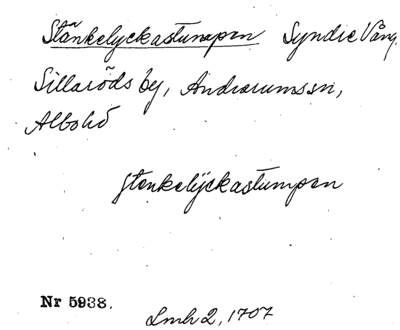 Stänkelyckastumpen Syndre Vång,
Sillaröds by, Andrarums sn,
Albo hd
Stenkelÿckastumpen
Nr 5938.
Lmh 2, 1707